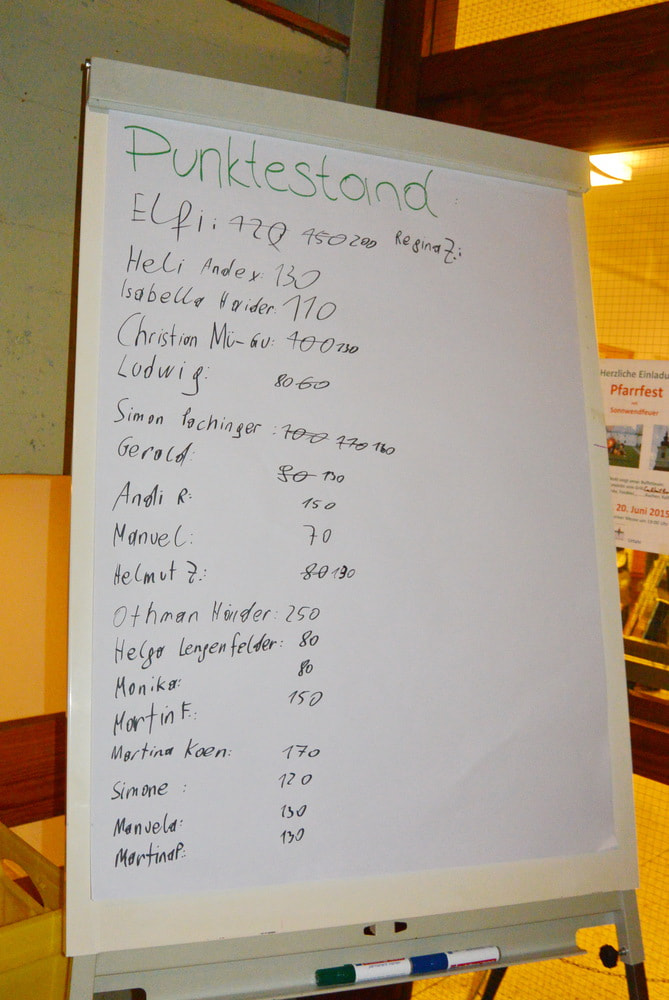 Punktestand
Elfi: 120 150 200 Regina Z.:
Heli Andex: 130
Isabella Haider: 110
Christian Mü-Gu: 100 130
Ludwig: 80 60
Simon Pachinger: 100 170 160
Gerald: 80 130
Andi R: 150
Manuel: 70
Helmut Z.: 80 130
Othman Haider: 250
Helga Lengenfelder: 80
Monika: 80
Martin F.: 150
Martina Koen: 170
Simone: 120
Manuela: 130
Martina P.: 130
Herzliche Einladu
Pfarrfest
Sonnwendfeuer
20. Juni 2015